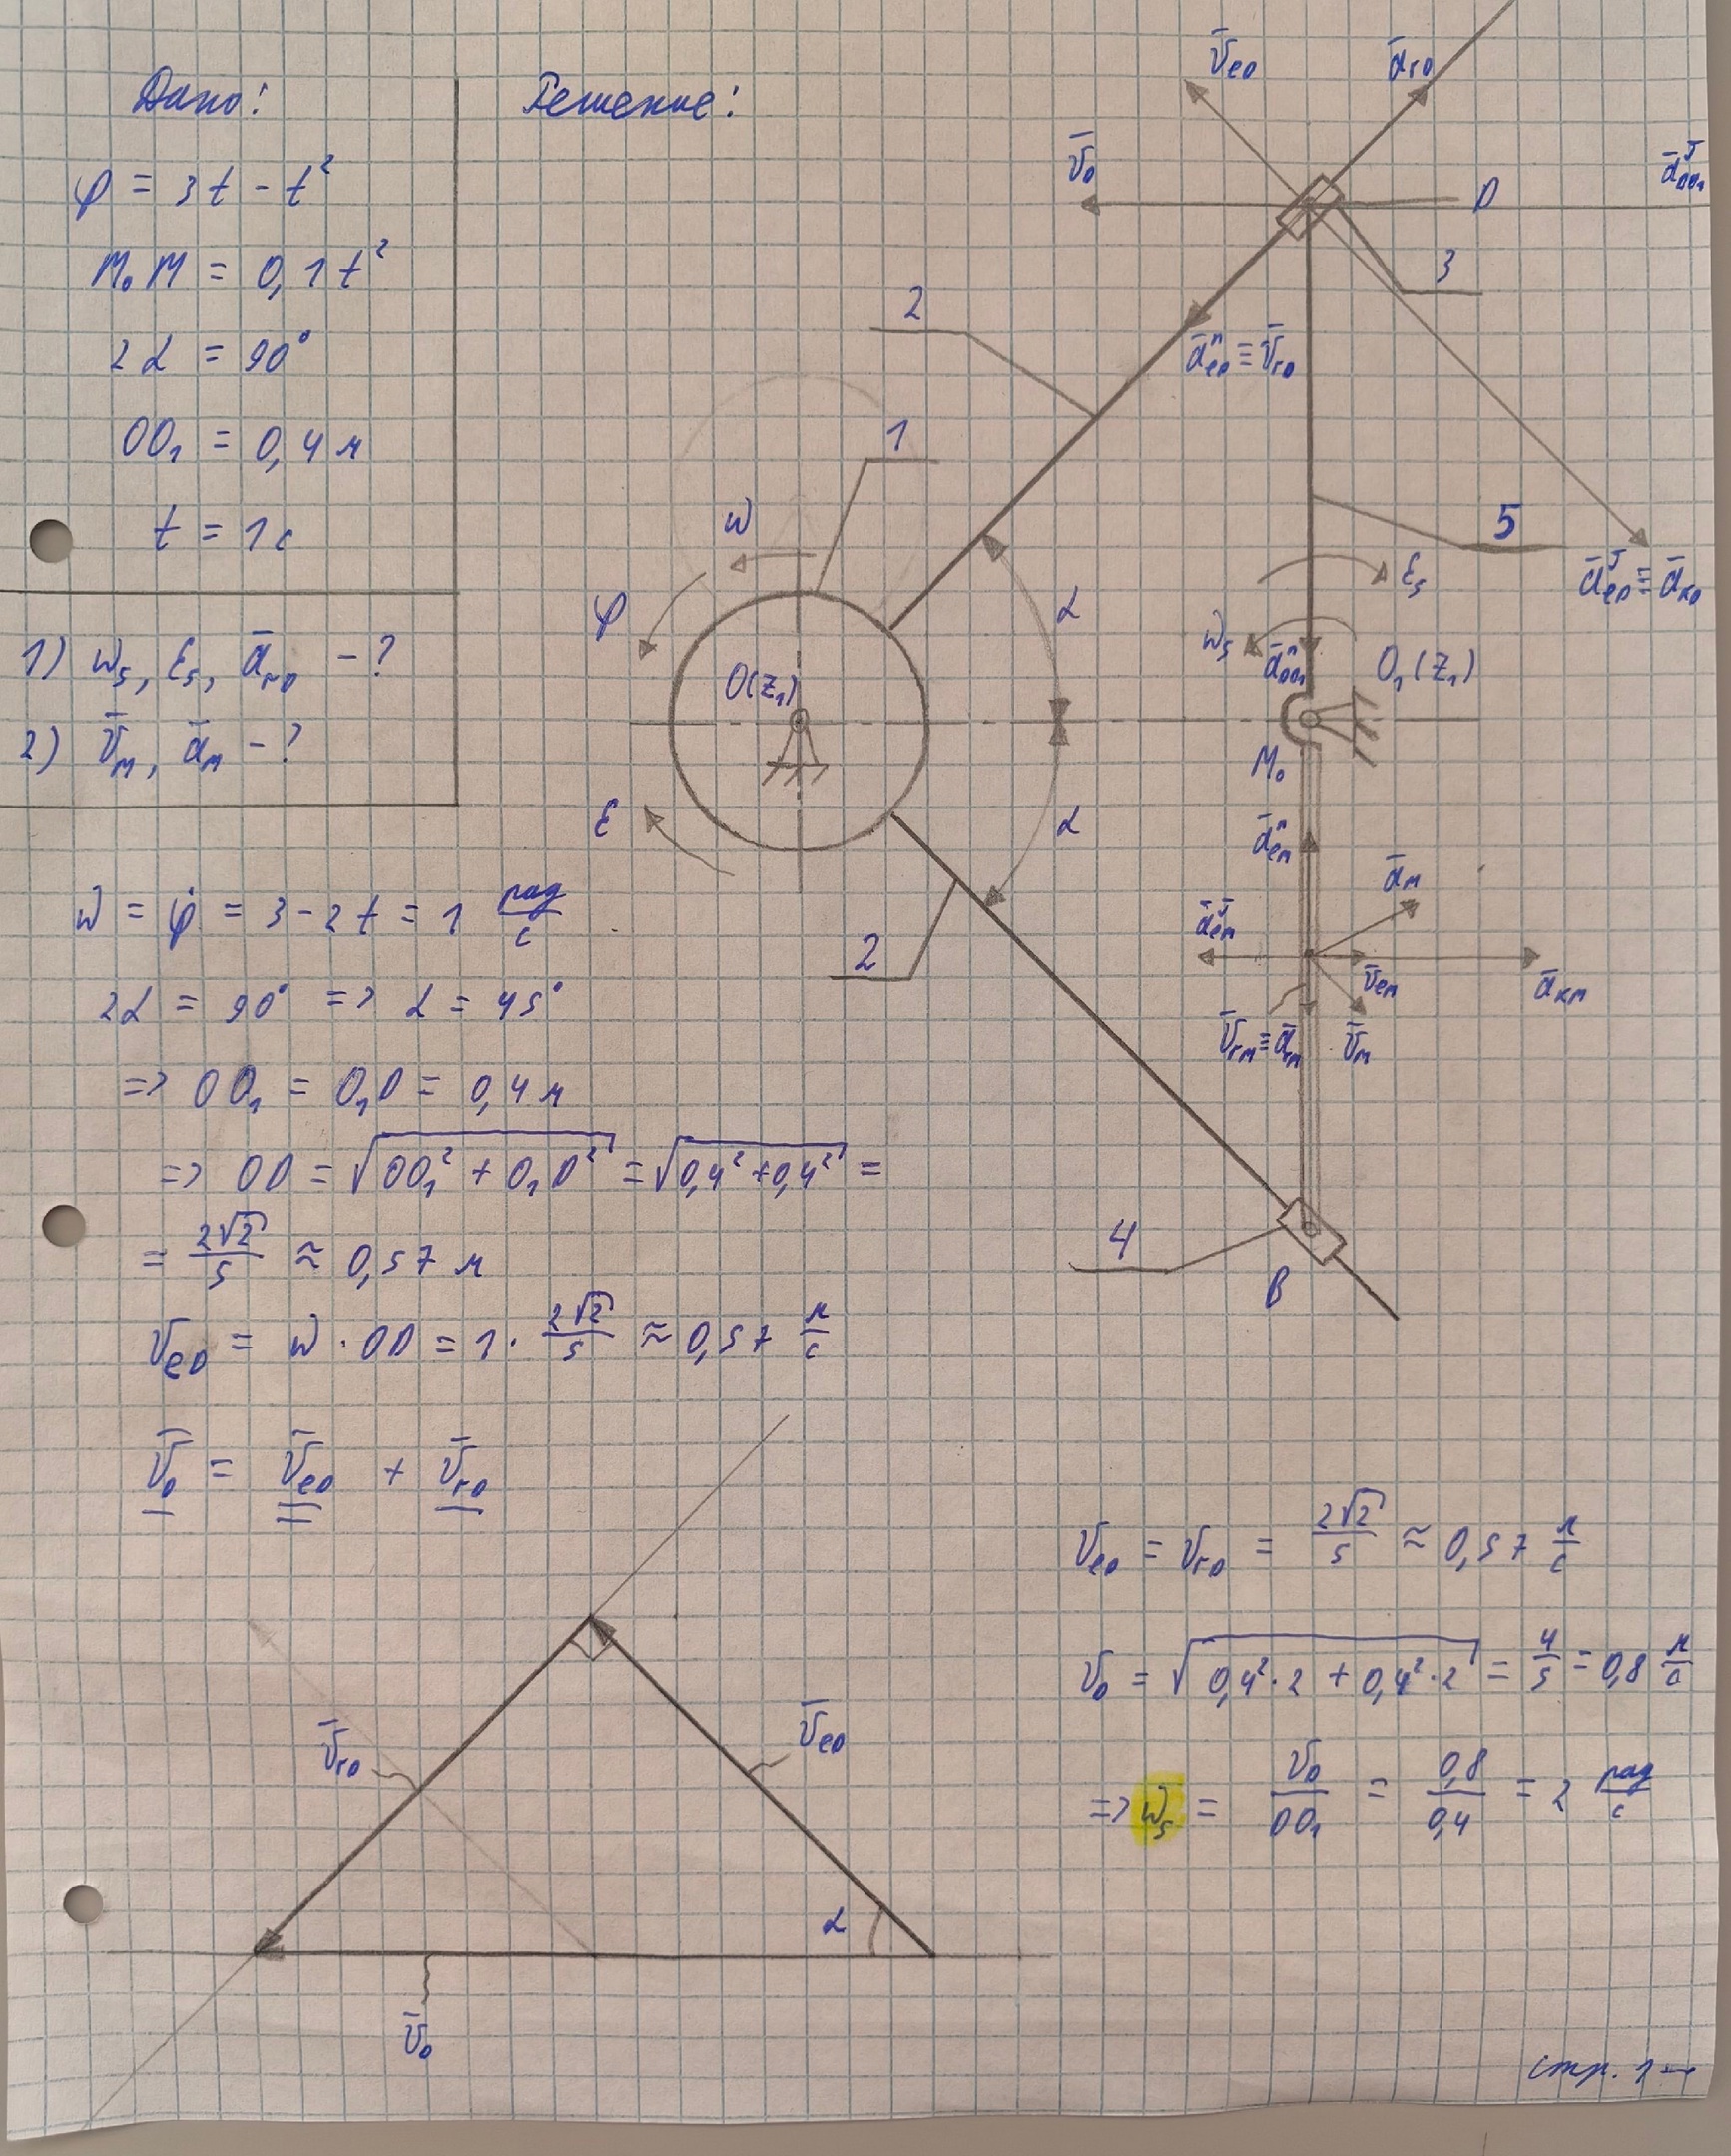 Дано:
Решение:
φ = 3t - t²
M₀M = 0,1t²
2α = 90°
OO₁ = 0,4 м
t = 1 с
1) ω₅, ε₅, a̅rD - ?
2) V̅M, a̅M - ?
V̅eD
a̅rD
V̅D
a̅τDO₁
D
3
2
a̅ⁿeD ≡ V̅rD
1
ω
5
ε₅
a̅τeD ≡ a̅кD
φ
α
ω₅
a̅ⁿDO₁
O₁(z₁)
O(z₁)
M₀
ε
α
a̅ⁿeM
a̅M
a̅τeM
V̅eM
a̅кM
2
V̅rM ≡ a̅rM
V̅M
4
B
ω = φ̇ = 3 - 2t = 1 рад/с
2α = 90° => α = 45°
=> OO₁ = O₁D = 0,4 м
=> OD = √(OO₁² + O₁D²) = √(0,4² + 0,4²) =
= 2√2/5 ≈ 0,57 м
VeD = ω · OD = 1 · 2√2/5 ≈ 0,57 м/с
V̅D = V̅eD + V̅rD
VeD = VrD = 2√2/5 ≈ 0,57 м/с
VD = √(0,4²·2 + 0,4²·2) = 4/5 = 0,8 м/с
=> ω₅ = VD/DO₁ = 0,8/0,4 = 2 рад/с
V̅rD
V̅eD
α
V̅D
стр. 1